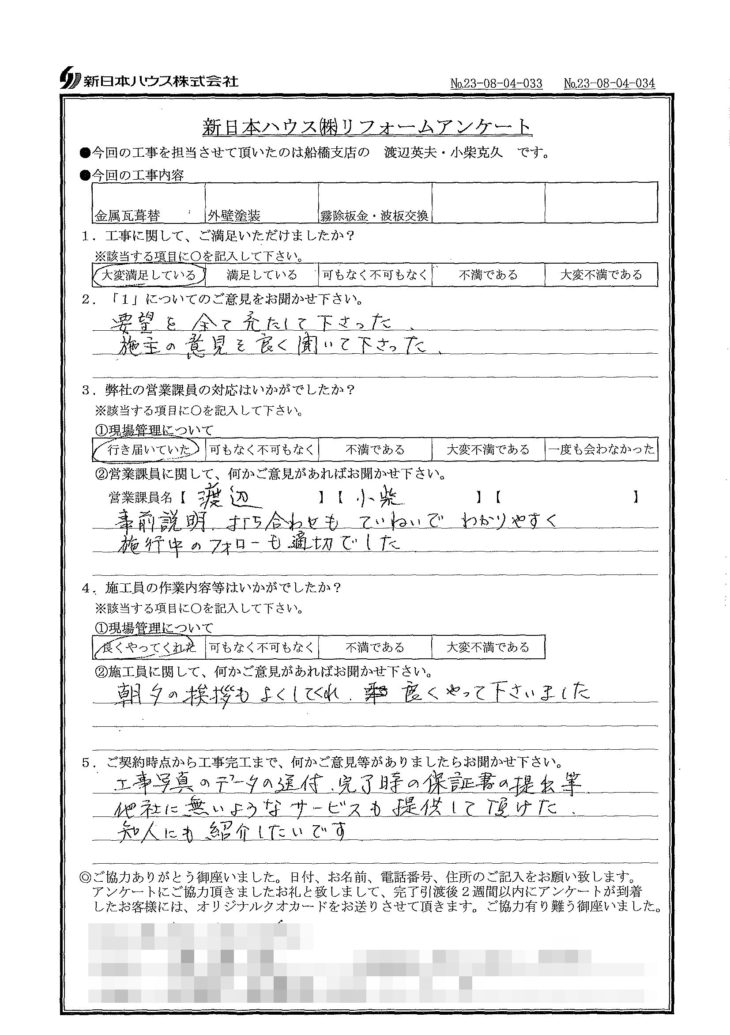 新日本ハウス株式会社 No.23-08-04-033 No.23-08-04-034
新日本ハウス㈱リフォームアンケート
●今回の工事を担当させて頂いたのは船橋支店の 渡辺英夫・小柴克久 です。
●今回の工事内容
金属瓦葺替 外壁塗装 霧除板金・波板交換
1．工事に関して、ご満足いただけましたか？
※該当する項目に○を記入して下さい。
大変満足している 満足している 可もなく不可もなく 不満である 大変不満である
2．「1」についてのご意見をお聞かせ下さい。
要望を全て充たして下さった、
施主の意見を良く聞いて下さった、
3．弊社の営業課員の対応はいかがでしたか？
※該当する項目に○を記入して下さい。
①現場管理について
行き届いていた 可もなく不可もなく 不満である 大変不満である 一度も会わなかった
②営業課員に関して、何かご意見があればお聞かせ下さい。
営業課員名【 渡辺 】【 小柴 】【 】
事前説明、打ち合わせも ていねいで わかりやすく
施行中のフォローも適切でした
4．施工員の作業内容等はいかがでしたか？
※該当する項目に○を記入して下さい。
①現場管理について
良くやってくれた 可もなく不可もなく 不満である 大変不満である
②施工員に関して、何かご意見があればお聞かせ下さい。
朝夕の挨拶もよくしてくれ、良くやって下さいました
5．ご契約時点から工事完工まで、何かご意見等がありましたらお聞かせ下さい。
工事写真のデータの送付、完了時の保証書の提出等、
他社に無いようなサービスも提供して頂けた、
知人にも紹介したいです
◎ご協力ありがとう御座いました。日付、お名前、電話番号、住所のご記入をお願い致します。
アンケートにご協力頂きましたお礼と致しまして、完了引渡後２週間以内にアンケートが到着
したお客様には、オリジナルクオカードをお送りさせて頂きます。ご協力有り難う御座いました。